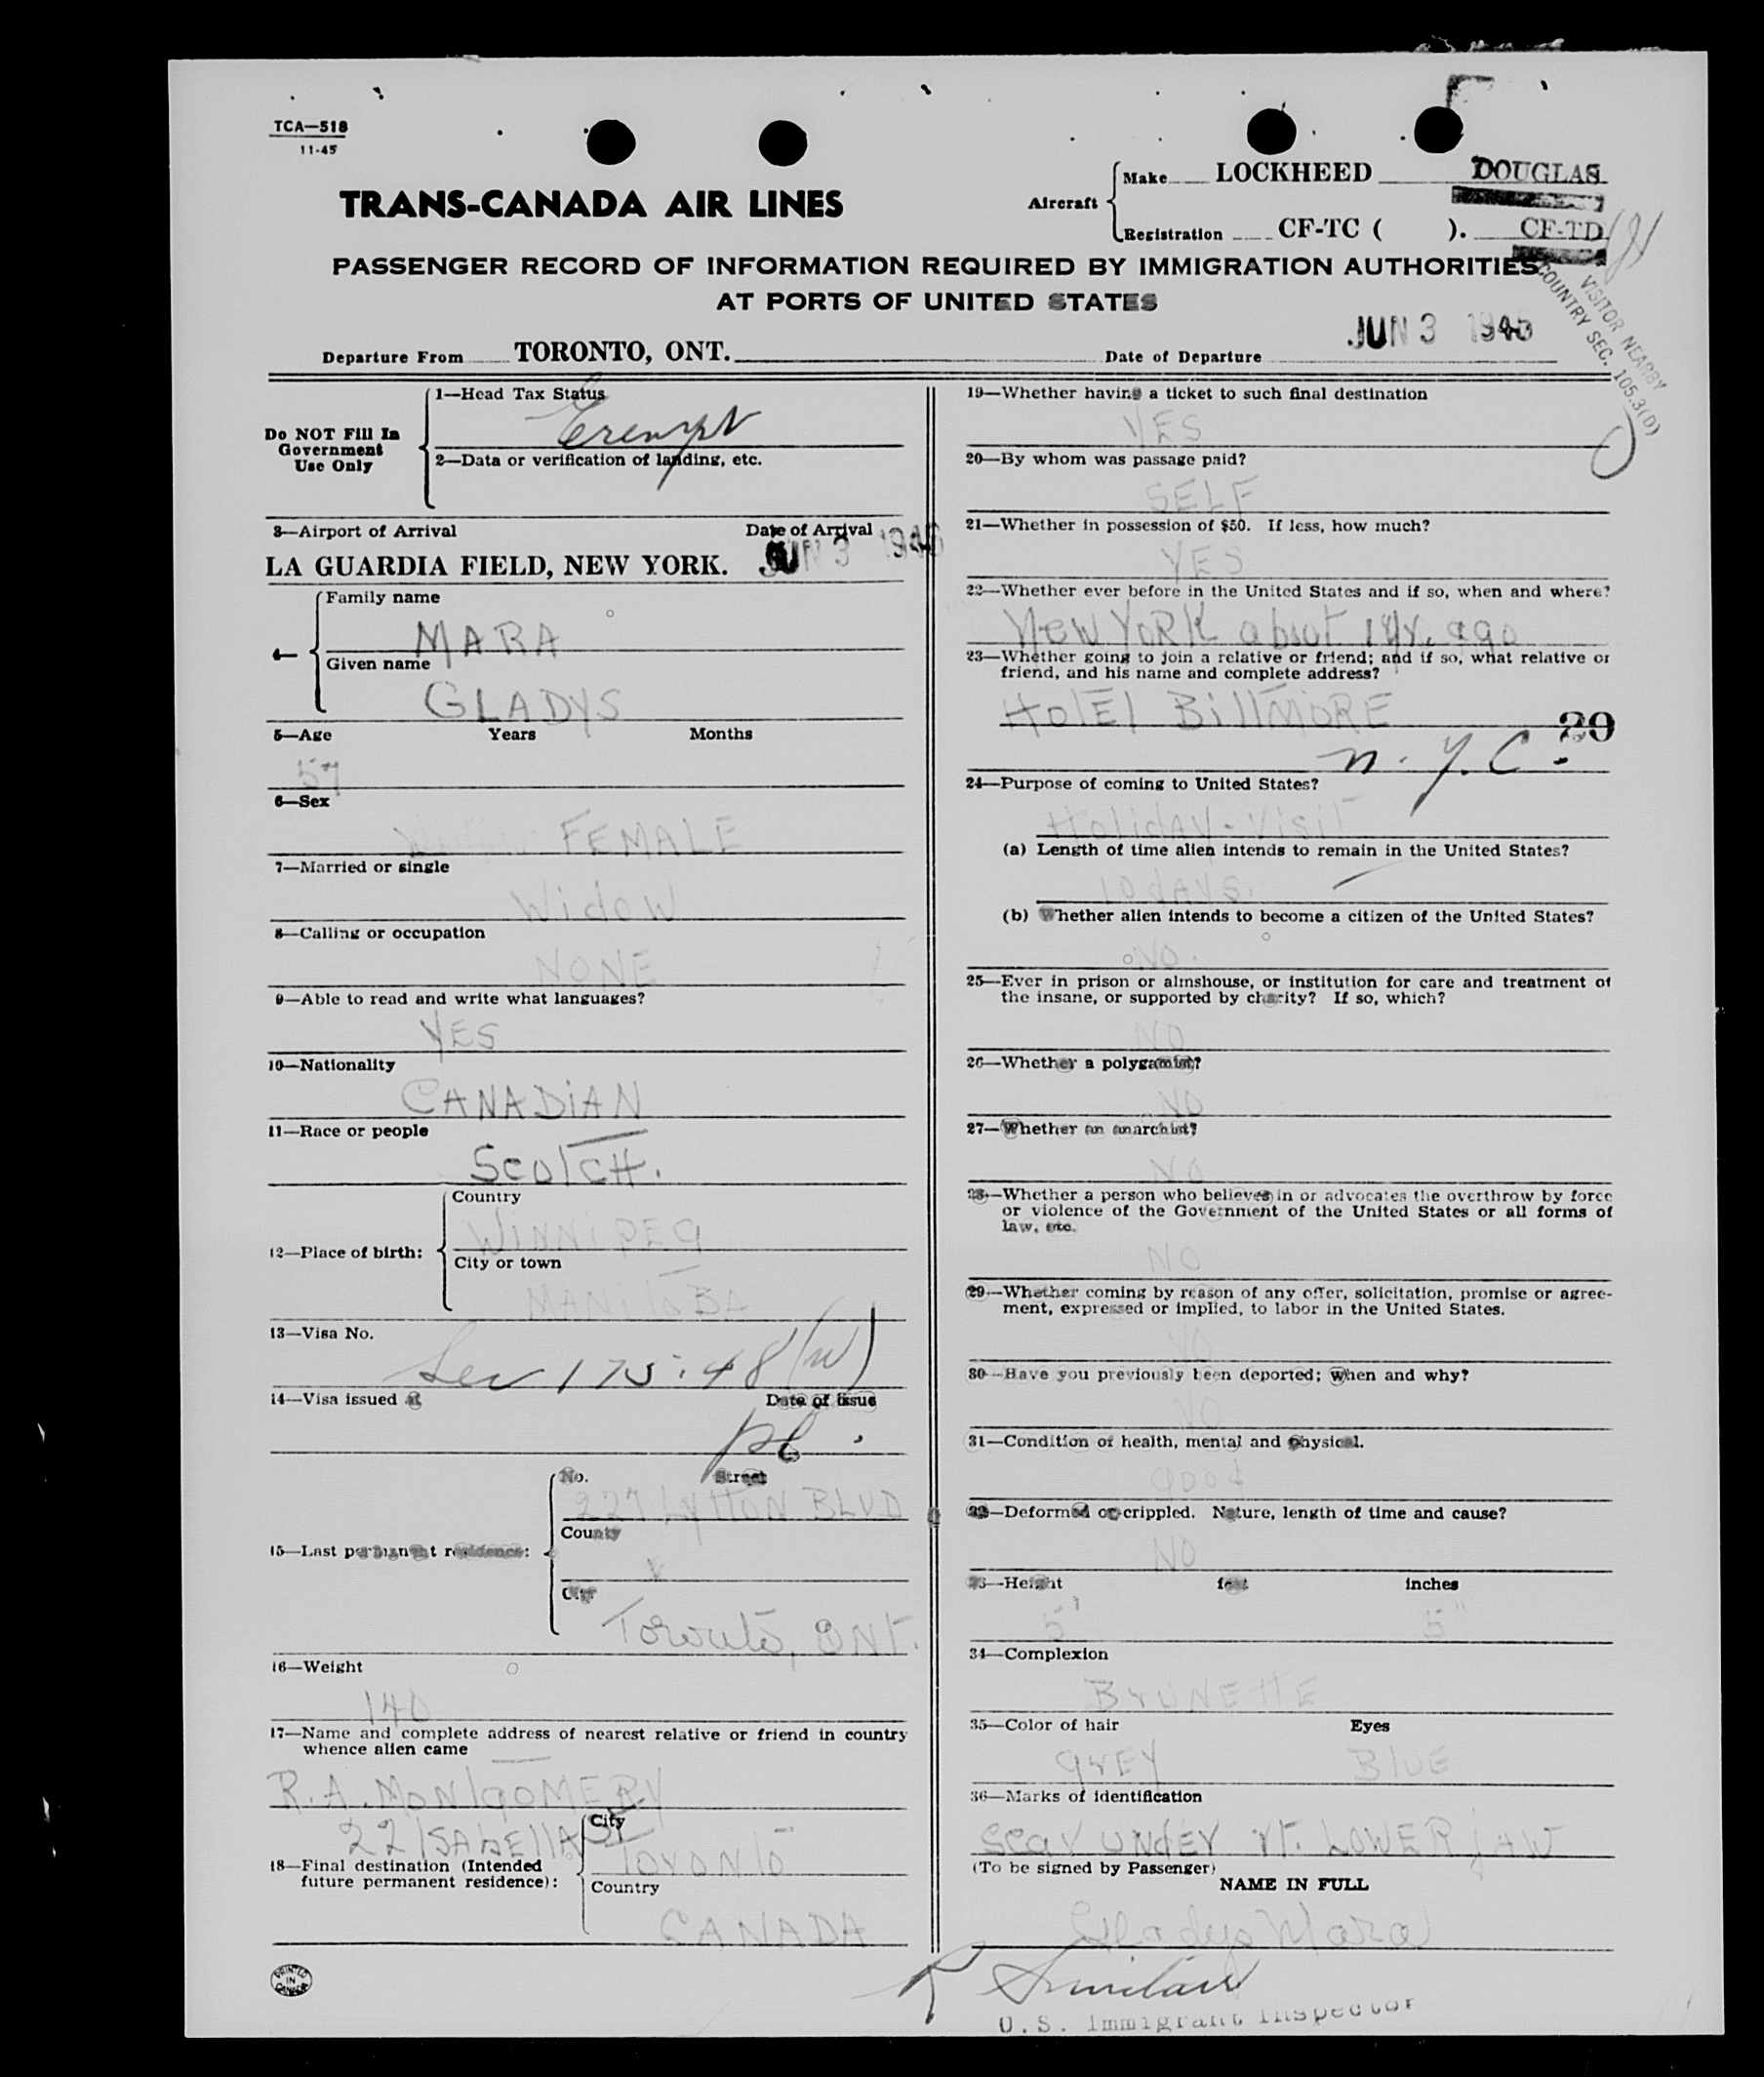 TCA—518
11-45
TRANS-CANADA AIR LINES
Aircraft
Make LOCKHEED DOUGLAS
Registration CF-TC ( ). CF-TD
PASSENGER RECORD OF INFORMATION REQUIRED BY IMMIGRATION AUTHORITIES
AT PORTS OF UNITED STATES
VISITOR NEARBY
COUNTRY SEC. 105.3(0)
Departure From TORONTO, ONT. Date of Departure JUN 3 1946
Do NOT Fill In
Government
Use Only
1—Head Tax Status
Exempt
2—Data or verification of landing, etc.
3—Airport of Arrival Date of Arrival
LA GUARDIA FIELD, NEW YORK. JUN 3 1946
4—
Family name
MARA
Given name
GLADYS
5—Age Years Months
57
6—Sex
FEMALE
7—Married or single
Widow
8—Calling or occupation
NONE
9—Able to read and write what languages?
YES
10—Nationality
CANADIAN
11—Race or people
SCOTCH.
12—Place of birth:
Country
WINNIPEG
City or town
MANITOBA
13—Visa No.
Sec 175.48 (w)
14—Visa issued at Date of issue
15—Last permanent residence:
No. Street
227 LYTTON BLVD
County
City
Toronto, ONT.
16—Weight
140
17—Name and complete address of nearest relative or friend in country
whence alien came
R.A. MONTGOMERY
22 ISABELLA ST
18—Final destination (Intended
future permanent residence):
City
TORONTO
Country
CANADA
PRINTED
IN
CANADA
19—Whether having a ticket to such final destination
YES
20—By whom was passage paid?
SELF
21—Whether in possession of $50. If less, how much?
YES
22—Whether ever before in the United States and if so, when and where?
NEW YORK about 1 yr. ago
23—Whether going to join a relative or friend; and if so, what relative or
friend, and his name and complete address?
HOTEL BILLTMORE
29
N.Y.C.
24—Purpose of coming to United States?
Holiday - Visit
(a) Length of time alien intends to remain in the United States?
10 days.
(b) Whether alien intends to become a citizen of the United States?
NO.
25—Ever in prison or almshouse, or institution for care and treatment of
the insane, or supported by charity? If so, which?
NO
26—Whether a polygamist?
NO
27—Whether an anarchist?
NO
28—Whether a person who believes in or advocates the overthrow by force
or violence of the Government of the United States or all forms of
law, etc.
NO
29—Whether coming by reason of any offer, solicitation, promise or agree-
ment, expressed or implied, to labor in the United States.
NO
30—Have you previously been deported; when and why?
NO
31—Condition of health, mental and physical.
good
32—Deformed or crippled. Nature, length of time and cause?
NO
33—Height feet inches
5' 5"
34—Complexion
BRUNETTE
35—Color of hair Eyes
grey BLUE
36—Marks of identification
Scar under rt. LOWER JAW
(To be signed by Passenger)
NAME IN FULL
Gladys Mara
U.S. Immigrant Inspector